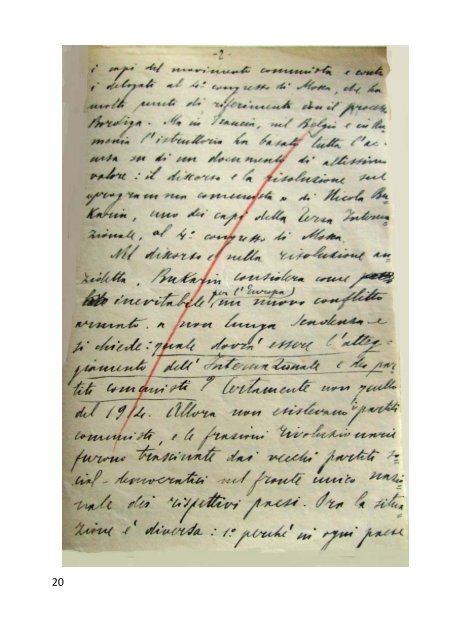 -2-
i capi del movimento comunista e contro
i delegati al 4° congresso di Mosca, che ha
molti punti di riferimento con il processo
Bordiga. Ma in Francia, nel Belgio e in Ru
mania l'istruttoria ha basato tutta l'ac
cusa su di un documento di altissimo
valore: il discorso e la risoluzione sul
programma comunista di Nicola Bu
karin, uno dei capi della Terza Interna
zionale, al 4° congresso di Mosca.
Nel discorso e nella risoluzione an
zidetta, Bukarin considera come
inevitabile (per l'Europa) un nuovo conflitto
armato a non lunga scadenza e
si chiede: quale dovrà essere l'atteg
giamento dell'Internazionale e dei par
titi comunisti? Certamente non quello
del 1914. Allora non esistevano i partiti
comunisti, e le frazioni rivoluzionarie
furono trascinate dai vecchi partiti so
cial-democratici nel fronte unico nazio
nale dei rispettivi paesi. Ora la situa
zione è diversa: 1° perché in ogni paese
20